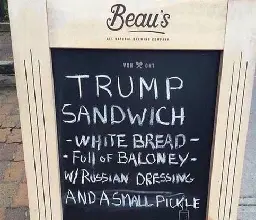 Beau's
ALL NATURAL BREWING COMPANY
TRUMP
SANDWICH
- WHITE BREAD -
- FULL OF BALONEY -
W/ RUSSIAN DRESSING
AND A SMALL PICKLE